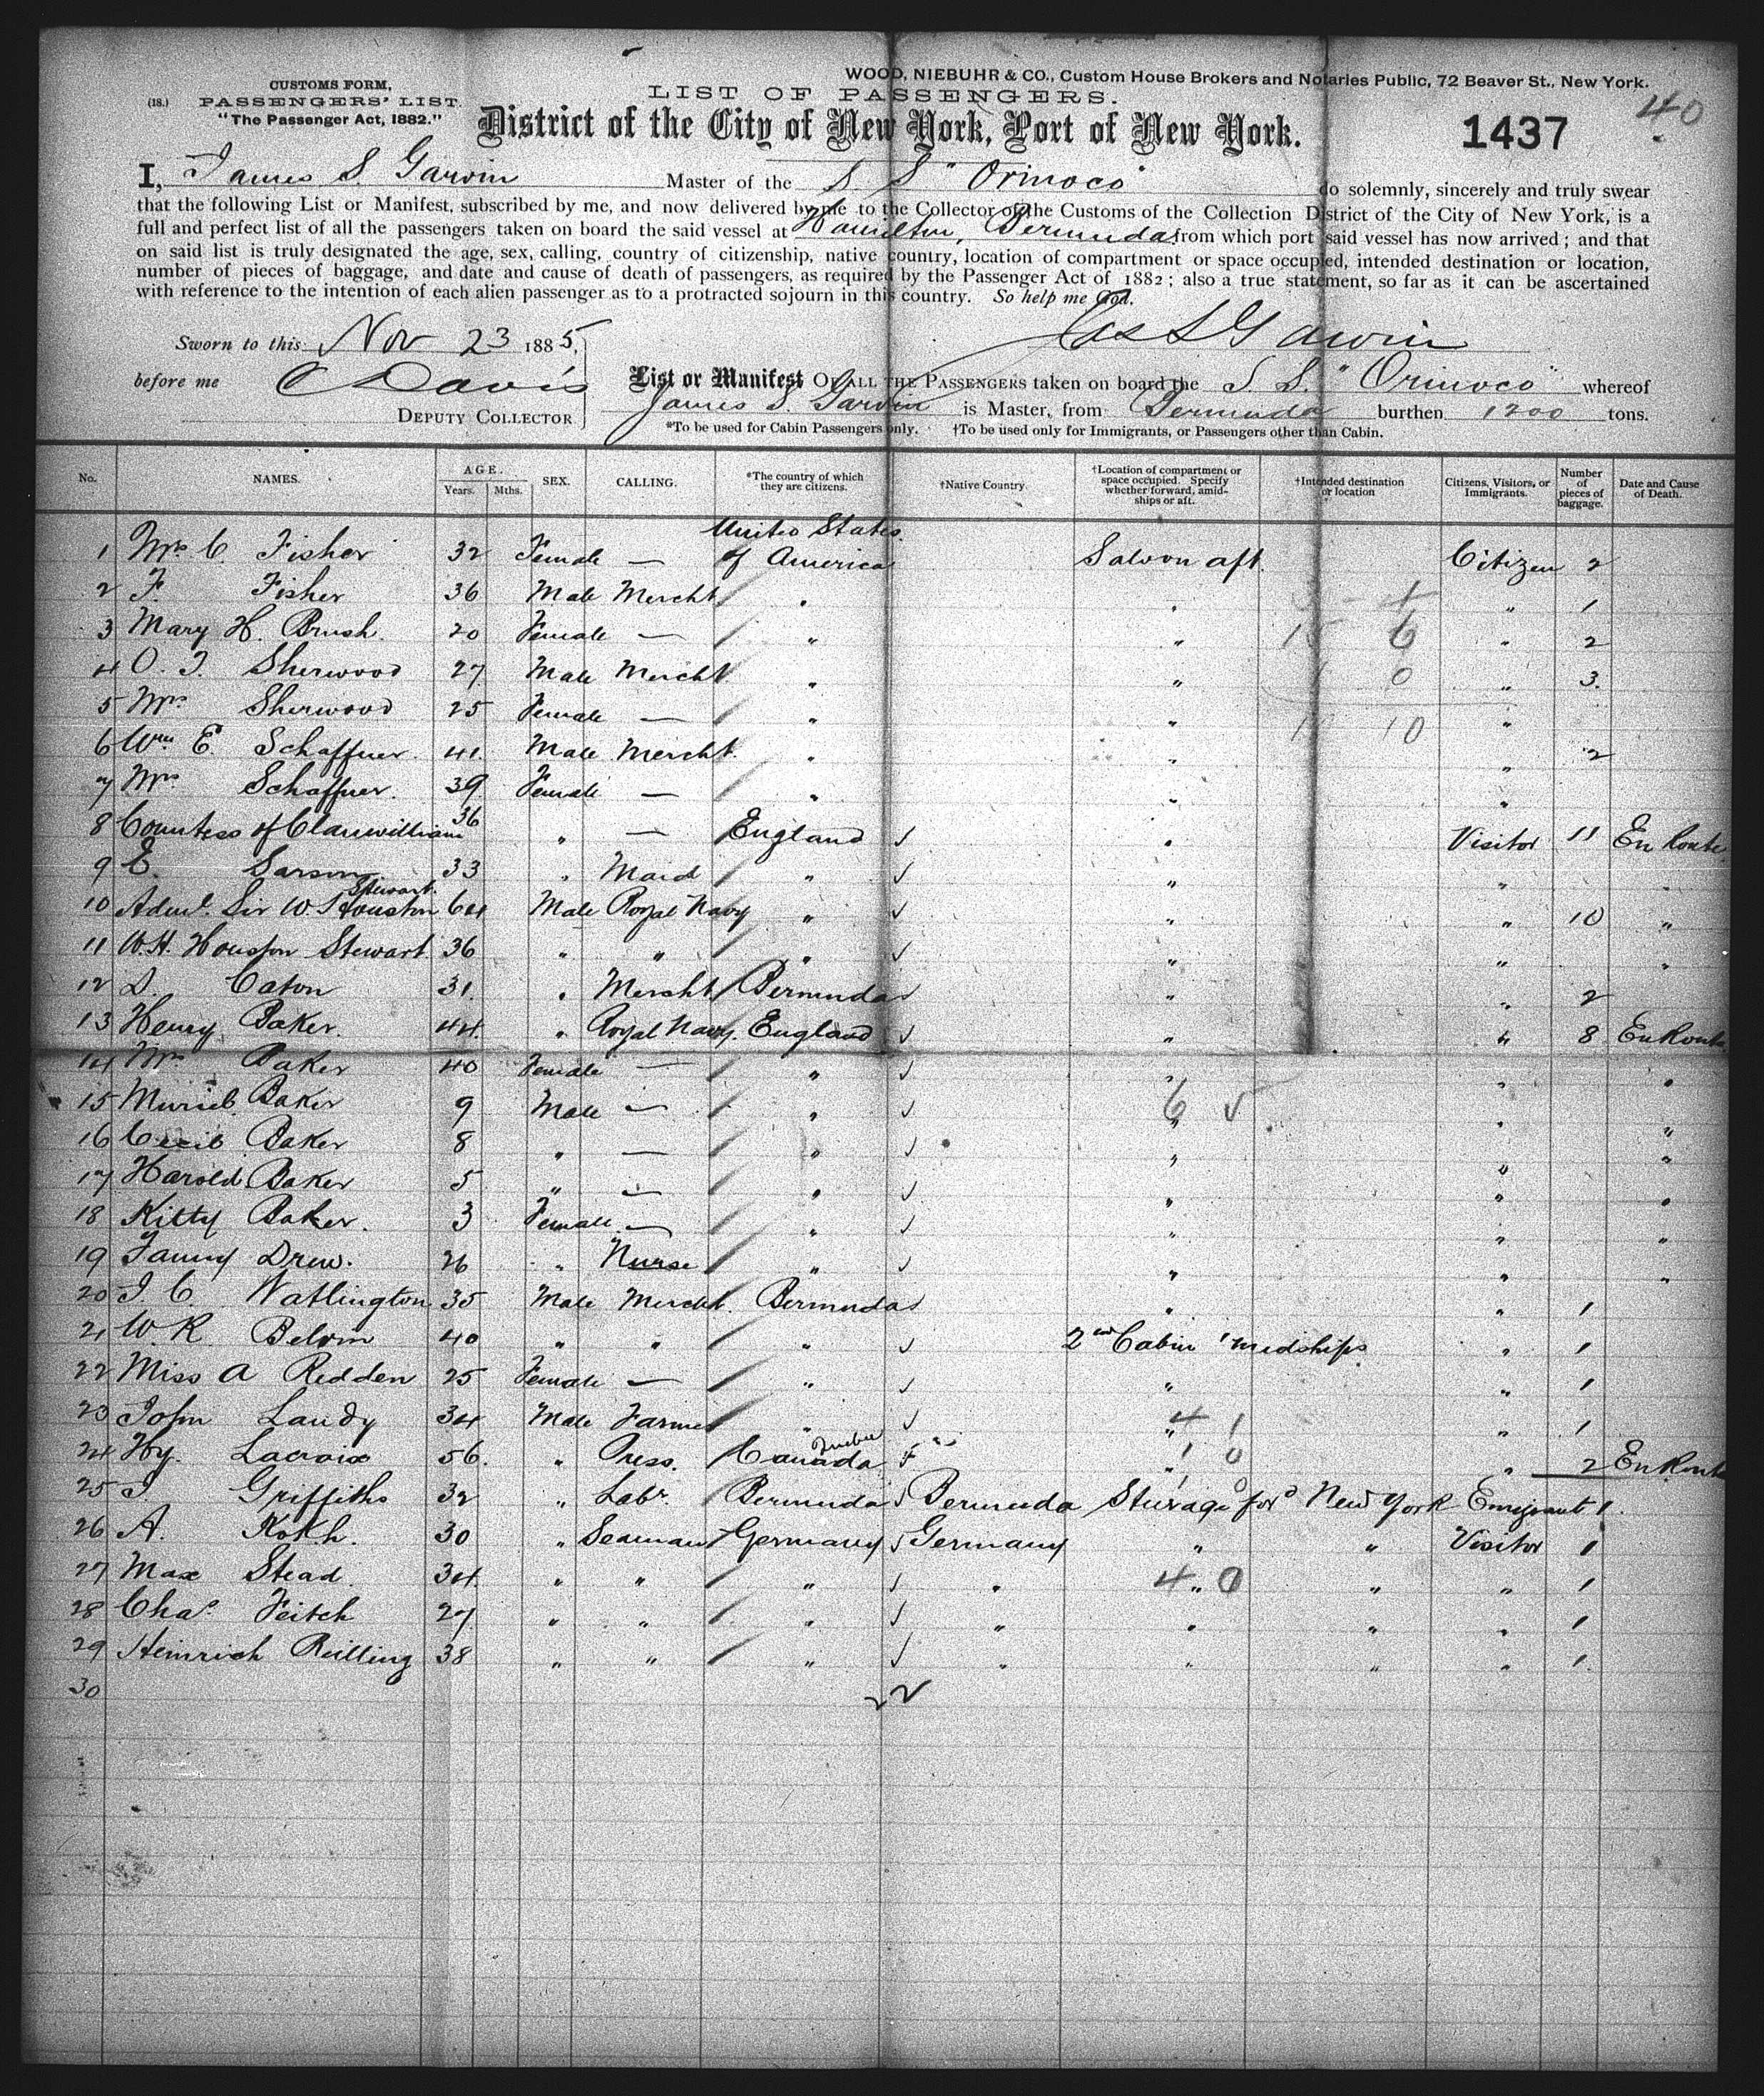 WOOD, NIEBUHR & CO., Custom House Brokers and Notaries Public, 72 Beaver St., New York.
CUSTOMS FORM,
(18.) PASSENGERS' LIST.
"The Passenger Act, 1882."
LIST OF PASSENGERS.
40
District of the City of New York, Port of New York.
1437
I, James S. Garvin Master of the S. S "Orinoco" do solemnly, sincerely and truly swear
that the following List or Manifest, subscribed by me, and now delivered by me to the Collector of the Customs of the Collection District of the City of New York, is a
full and perfect list of all the passengers taken on board the said vessel at Hamilton, Bermuda from which port said vessel has now arrived; and that
on said list is truly designated the age, sex, calling, country of citizenship, native country, location of compartment or space occupied, intended destination or location,
number of pieces of baggage, and date and cause of death of passengers, as required by the Passenger Act of 1882; also a true statement, so far as it can be ascertained
with reference to the intention of each alien passenger as to a protracted sojourn in this country. So help me God.
Jas S Garvin
Sworn to this Nov 23 1885,
before me C Davis
DEPUTY COLLECTOR
List or Manifest OF ALL THE PASSENGERS taken on board the S. S. "Orinoco" whereof
James S. Garvin is Master, from Bermuda burthen 1200 tons.
*To be used for Cabin Passengers only. †To be used only for Immigrants, or Passengers other than Cabin.
No. NAMES. AGE. Years. Mths. SEX. CALLING. *The country of which they are citizens. †Native Country. †Location of compartment or space occupied. Specify whether forward, amidships or aft. †Intended destination or location Citizens, Visitors, or Immigrants. Number of pieces of baggage. Date and Cause of Death.
1 Mrs C. Fisher 32 Female — United States of America Saloon aft. Citizen 2
2 F. Fisher 36 Male Mercht " " " 1
3 Mary H. Brush. 20 Female — " " " 2
4 O. T. Sherwood 27 Male Mercht " " " 3.
5 Mrs Sherwood 25 Female — " " "
6 Wm E. Schaffner. 41. Male Mercht. " " " 2
7 Mrs Schaffner. 39. Female — " " "
8 Countess of Clanwilliam 36 " — England " Visitor 11 En Route
9 E. Sarson 33 " Maid " " " "
10 Adml. Sir W. Houston Stewart. 64 Male Royal Navy " " " 10 "
11 W.H. Houston Stewart 36 " " " " " "
12 D. Eaton 31. " Mercht Bermuda " " 2
13 Henry Baker. 44. " Royal Navy. England " " 8 En Route
14 Mrs Baker 40 Female — " " " "
15 Muriel Baker 9 Male — " " " "
16 Cecil Baker 8 " — " " " "
17 Harold Baker 5 " — " " " "
18 Kitty Baker. 3 Female — " " " "
19 Fanny Drew. 26 " Nurse " " " "
20 J C. Watlington 35 Male Mercht. Bermuda " " 1
21 W. R. Belvin 40 " " " 2nd Cabin 'midships " 1
22 Miss A Redden 25 Female — " " " 1
23 John Landy 34 Male Farmer " " " 1
24 Hy. Lacroix 56. " Press. Canada Quebec " " 2 En Route
25 J. Griffiths 32 " Labr. Bermuda Bermuda Steerage ford New York Emigrant 1.
26 A. Kokh. 30 " Seaman Germany Germany " " Visitor 1
27 Max Stead. 34. " " " " " " " 1
28 Chas. Feitch 27. " " " " " " " 1
29 Heinrich Rulling 38 " " " " " " " 1.
30
22